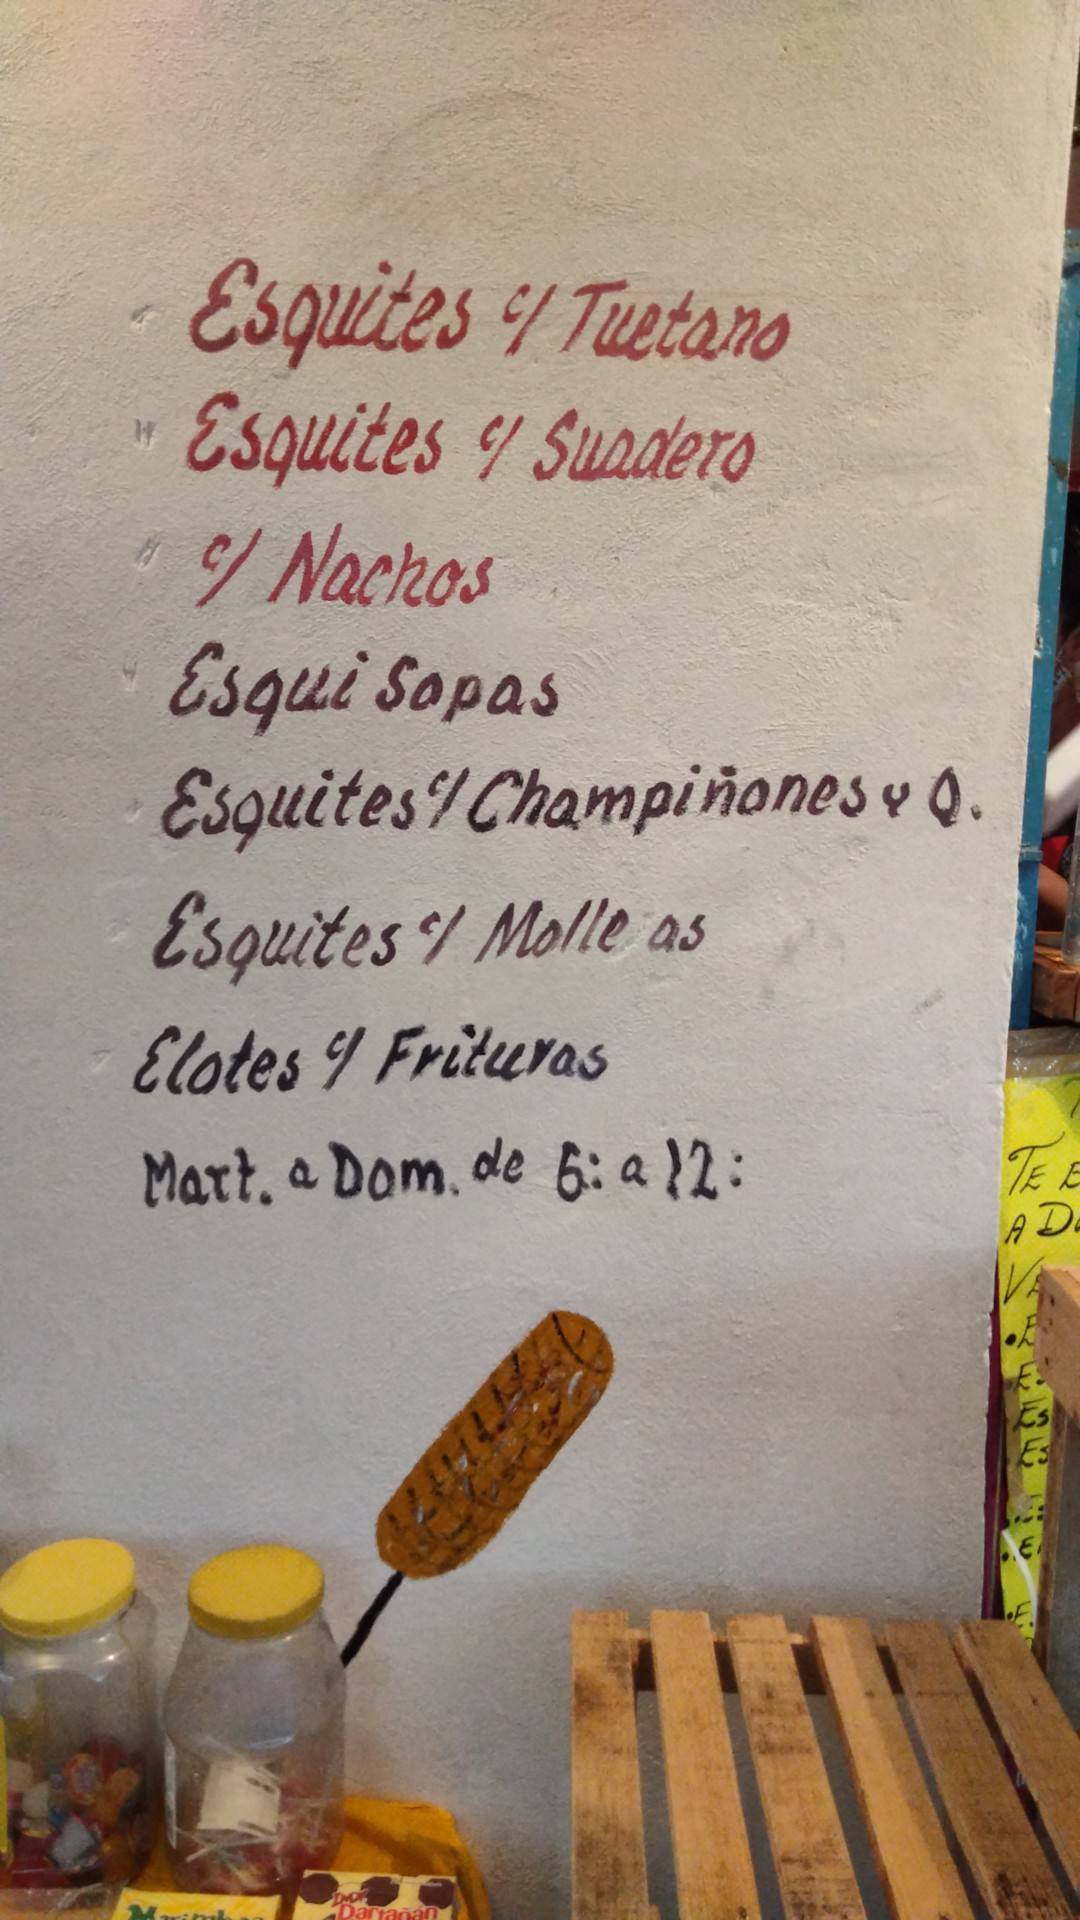 Esquites c/ Tuetano
Esquites c/ Suadero
c/ Nachos
Esqui Sopas
Esquites c/ Champiñones y Q.
Esquites c/ Molle as
Elotes c/ Frituras
Mart. a Dom. de 6: a 12:
TE
A
Dartañán